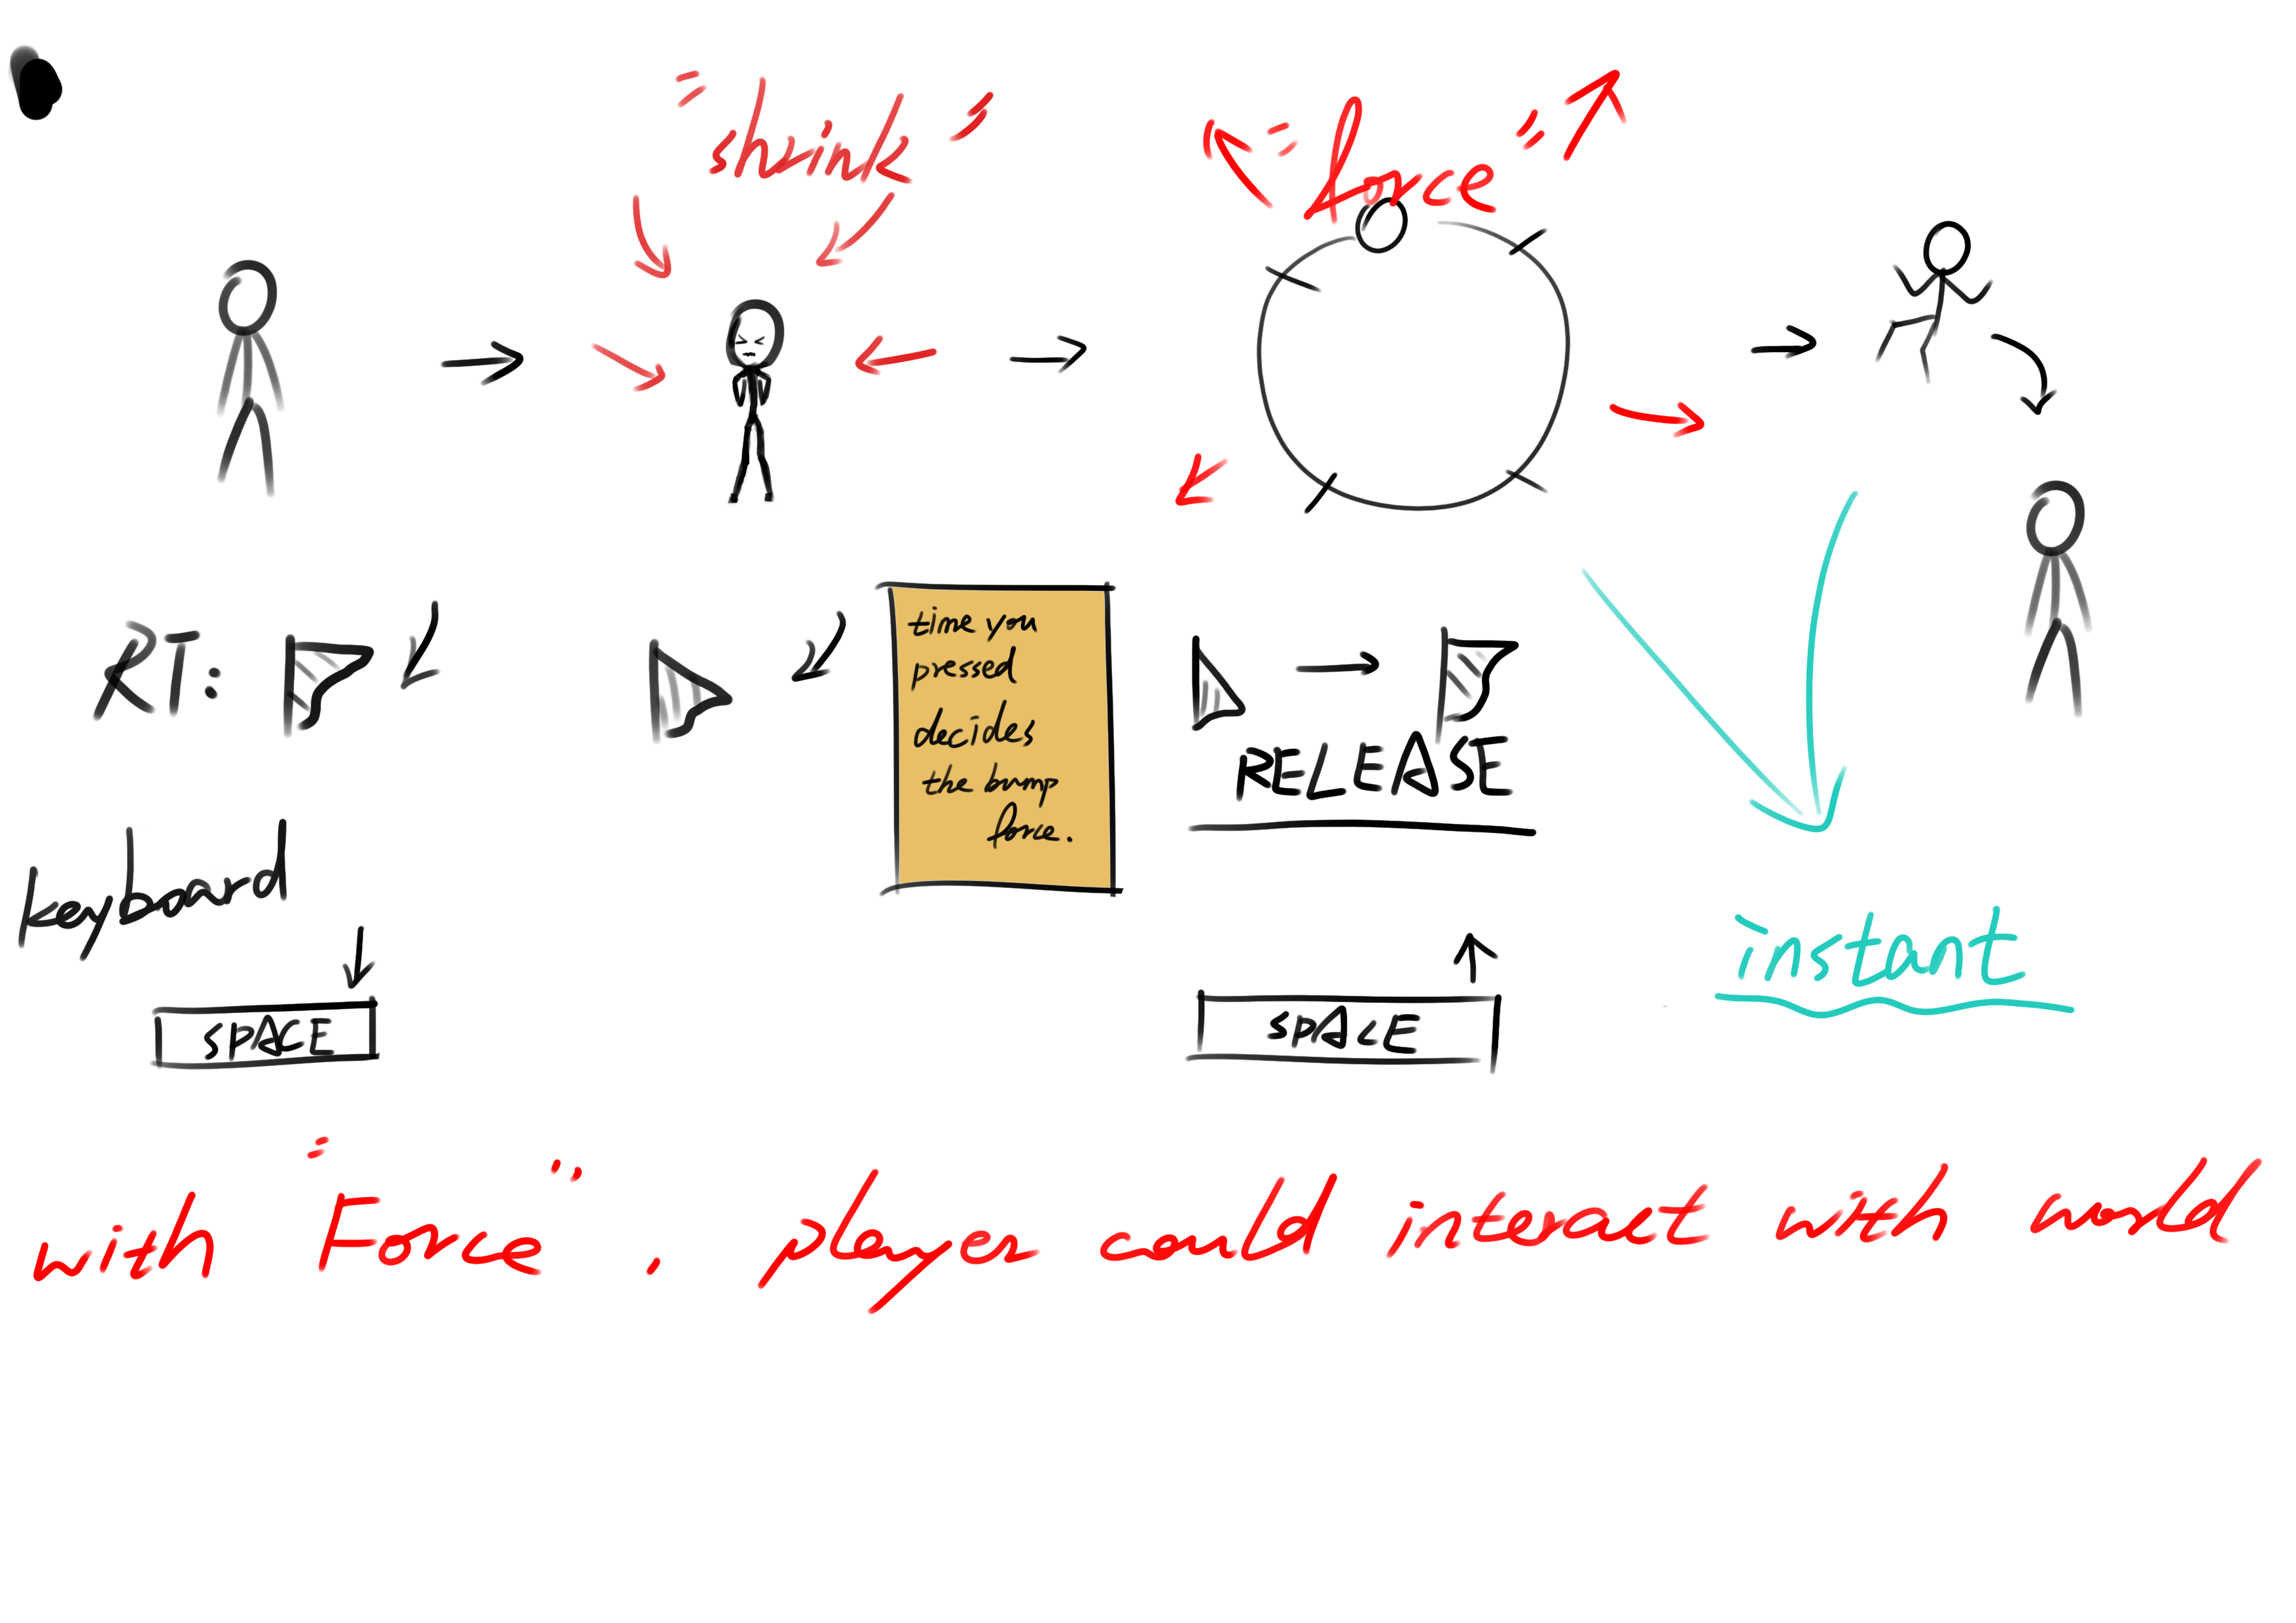 "shrink"
"force"
RT:
time you
pressed
decides
the bump
force.
RELEASE
keyboard
SPACE
SPACE
instant
with "Force", player could interact with world